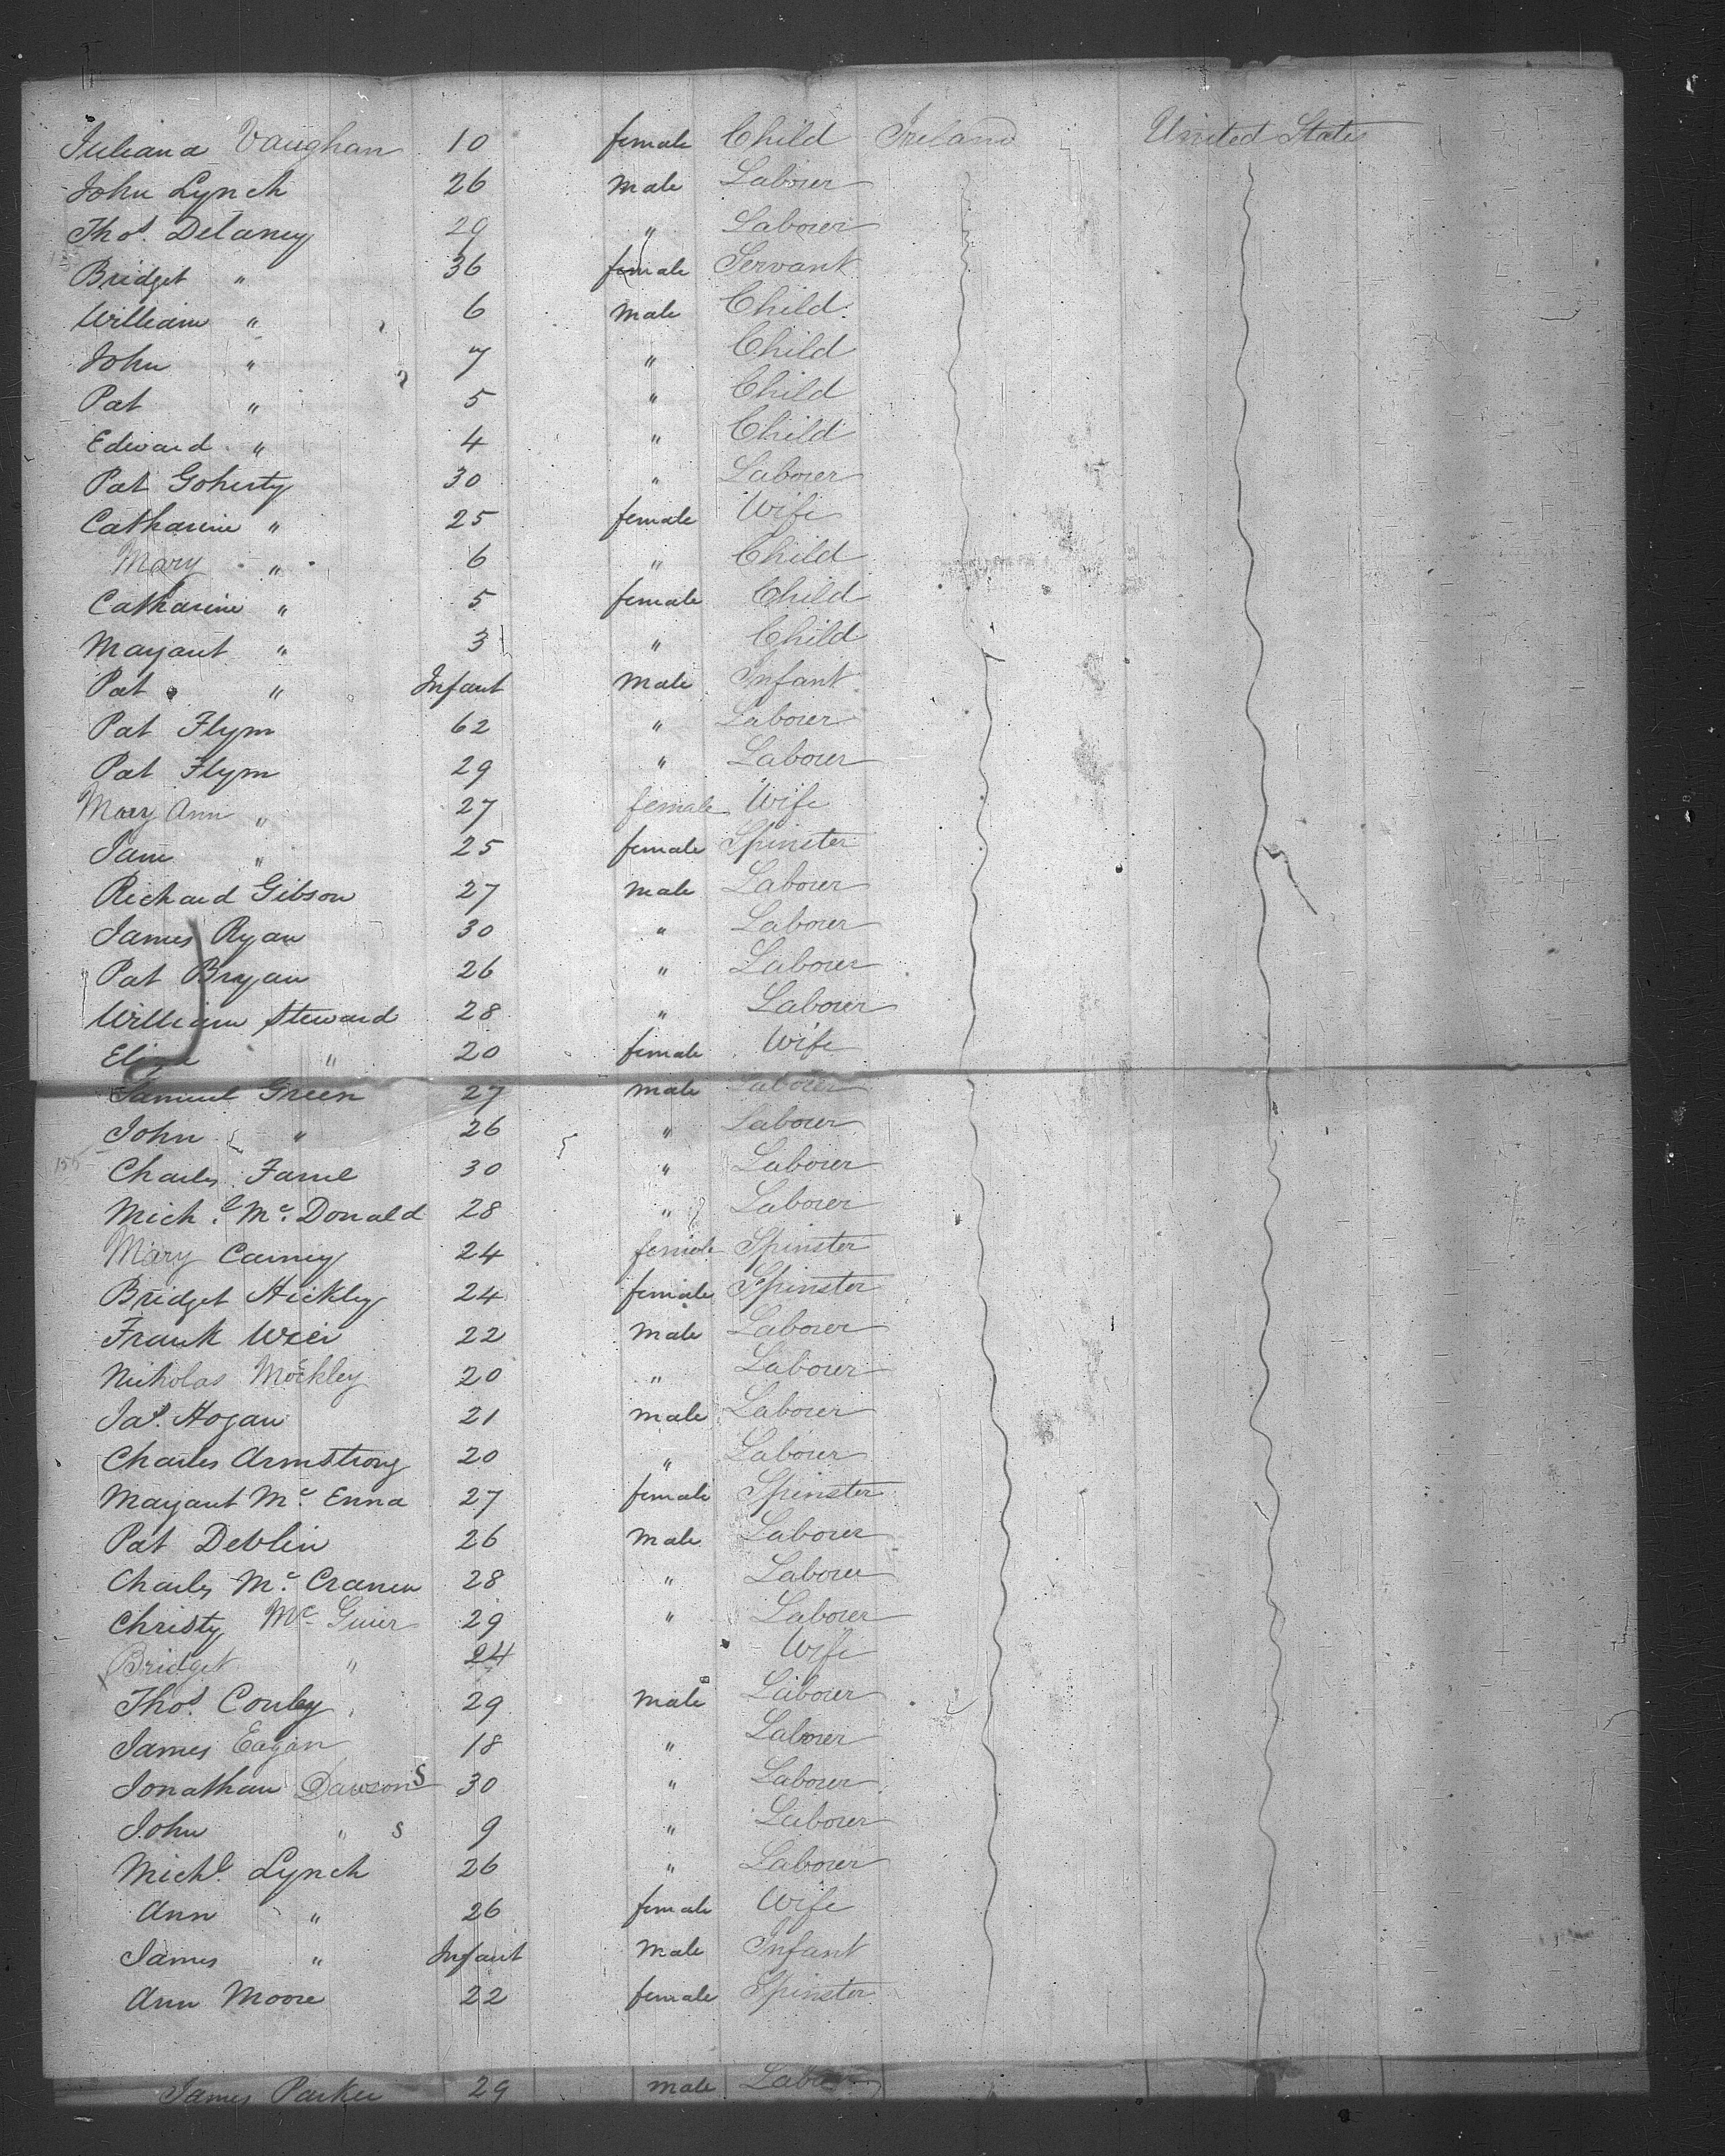 Juliana Vaughan 10 female Child Ireland United States
John Lynch 26 male Laborer
Thos. Delaney 29 " Laborer
Bridget " 36 female Servant
William " 6 male Child
John " 7 " Child
Pat " 5 " Child
Edward " 4 " Child
Pat Goherty 30 " Laborer
Catharine " 25 female Wife
Mary " 6 " Child
Catharine " 5 female Child
Mayaut " 3 " Child
Pat " Infant Male Infant
Pat Flynn 62 " Laborer
Pat Flynn 29 " Laborer
Mary Ann " 27 female Wife
Jane " 25 female Spinster
Richard Gibson 27 male Laborer
James Ryan 30 " Laborer
Pat Bryan 26 " Laborer
William Steward 28 " Laborer
Eliza " 20 female Wife
Samuel Green 27 male Laborer
John " 26 " Laborer
155
Charles Farrel 30 " Laborer
Michl. Mc. Donald 28 " Laborer
Mary Carney 24 female Spinster
Bridget Hickley 24 female Spinster
Frank Weir 22 Male Laborer
Nicholas Mockley 20 " Laborer
Jas. Hogan 21 male Laborer
Charles Armstrong 20 " Laborer
Mayaut Mc. Enna 27 female Spinster
Pat Devlin 26 Male Laborer
Charles Mc. 28 " Laborer
Christy Mc Guier 29 " Laborer
Bridget " 24 Wife
Thos. Conley 29 male Laborer
James Eagan 18 " Laborer
Jonathan Dawson S 30 " Laborer
John " s 9 " Laborer
Michl. Lynch 26 " Laborer
Ann " 26 female Wife
James " Infant Male Infant
Ann Moore 22 female Spinster
James Parker 29 male Laborer